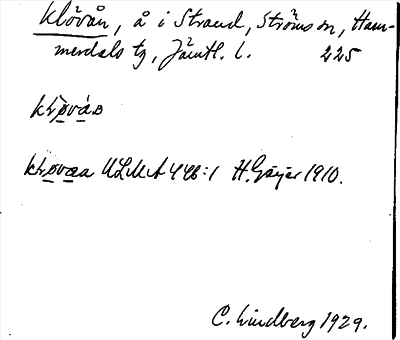 Klövån, å i Strand, Ströms sn, Ham-
merdals tg, Jämtl. l. 225
klø̀vá̀n
kløvæa ULMA 446:1 H. Geijer 1910.
C. Lindberg 1929.